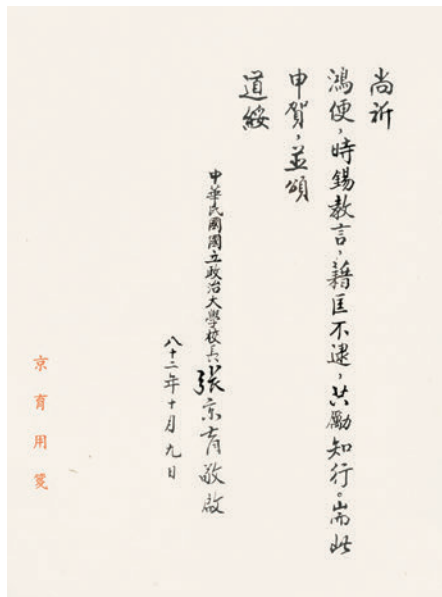 尚祈
鴻便，時錫教言，藉匡不逮，共勵知行。耑此
申賀，並頌
道綏
中華民國國立政治大學校長張京育敬啟
八十二年十月九日
京育用箋